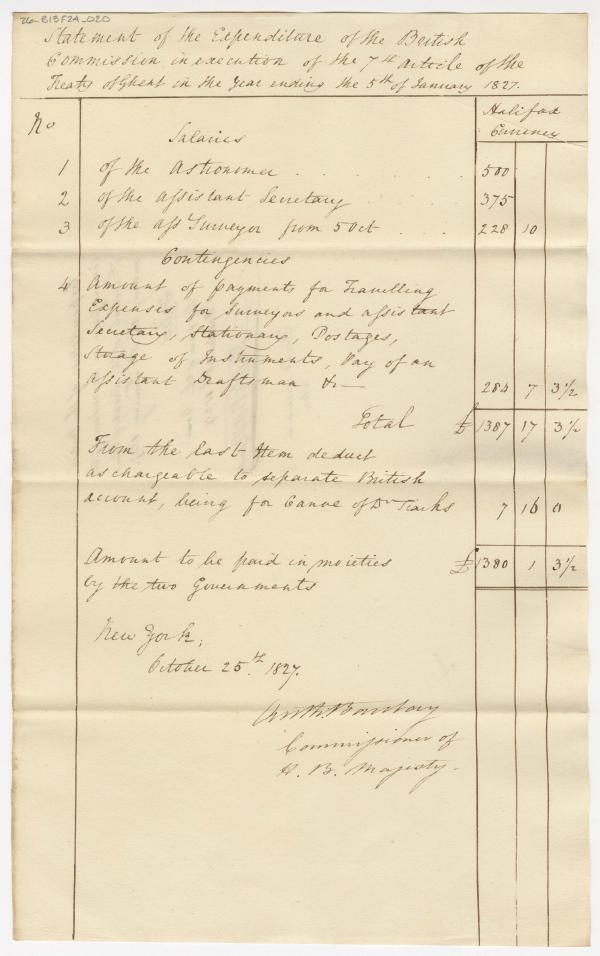 26-B13F2A_020
Statement of the Expenditure of the British
Commission in execution of the 7th Article of the
Treaty of Ghent in the Year ending the 5th of January 1827.
No
Halifax
Currency
Salaries
1 of the Astronomer . . . . . . . 500
2 of the Assistant Secretary . . . . . 375
3 of the Ass Surveyor from 5 Oct . . . 228 10
Contingencies
4 Amount of payments for Travelling
Expenses for Surveyors and assistant
Secretary, Stationary, Postages,
Storage of Instruments, Pay of an
assistant Draftsman &c — 284 7 3½
Total £ 1387 17 3½
From the last Item deduct
as chargeable to separate British
account, being for Canoe of Dr Tiarks 7 16 0
Amount to be paid in moieties £ 1380 1 3½
by the two Governments
New York,
October 25th 1827.
Anth. Barclay
Commissioner of
H. B. Majesty.